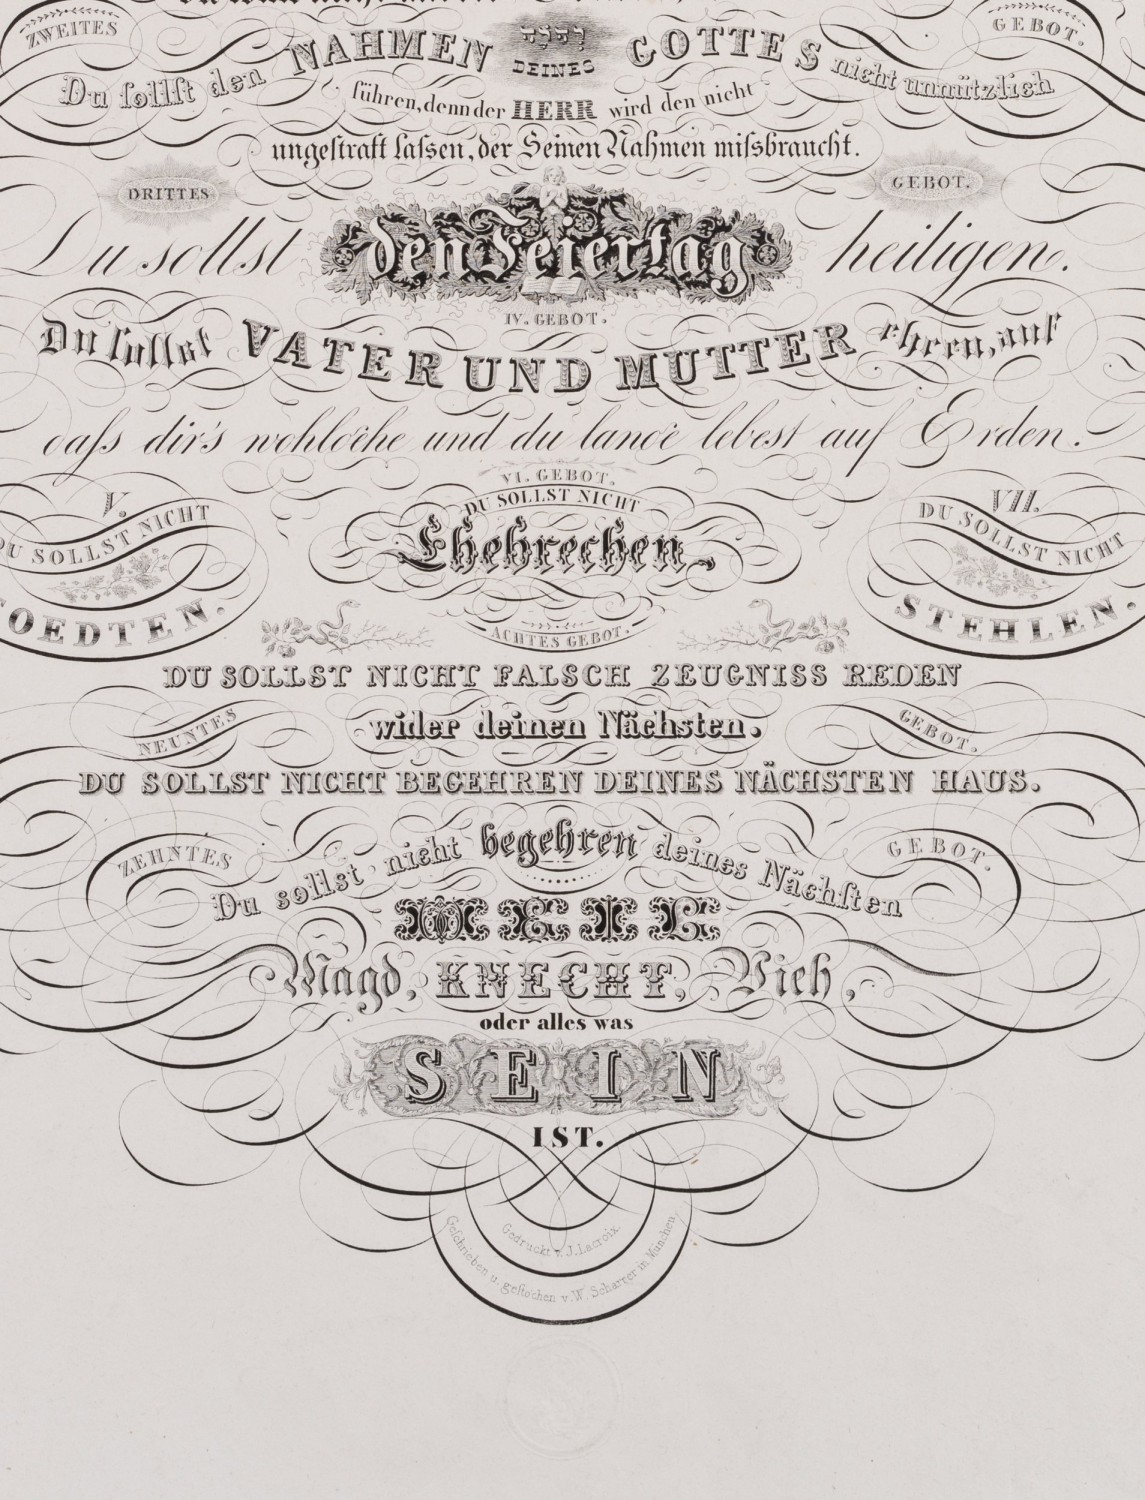 ZWEITES GEBOT.
Du sollst den NAHMEN DEINES GOTTES nicht unnützlich
führen, denn der HERR wird den nicht
ungestraft lassen, der Seinen Nahmen missbraucht.
DRITTES GEBOT.
Du sollst den Feiertag heiligen.
IV. GEBOT.
Du sollst VATER UND MUTTER ehren, auf
dass dir's wohlgehe und du lange lebest auf Erden.
V. DU SOLLST NICHT TOEDTEN.
VI. GEBOT.
DU SOLLST NICHT
Ehebrechen.
VII. DU SOLLST NICHT STEHLEN.
ACHTES GEBOT.
DU SOLLST NICHT FALSCH ZEUGNISS REDEN
wider deinen Nächsten.
NEUNTES GEBOT.
DU SOLLST NICHT BEGEHREN DEINES NÄCHSTEN HAUS.
ZEHNTES GEBOT.
Du sollst nicht begehren deines Nächsten
WEIB,
Magd, KNECHT, Vieh,
oder alles was
SEIN
IST.
Gedruckt v. J. Lacroix.
Geschrieben u. gestochen v. W. Scharrer in München